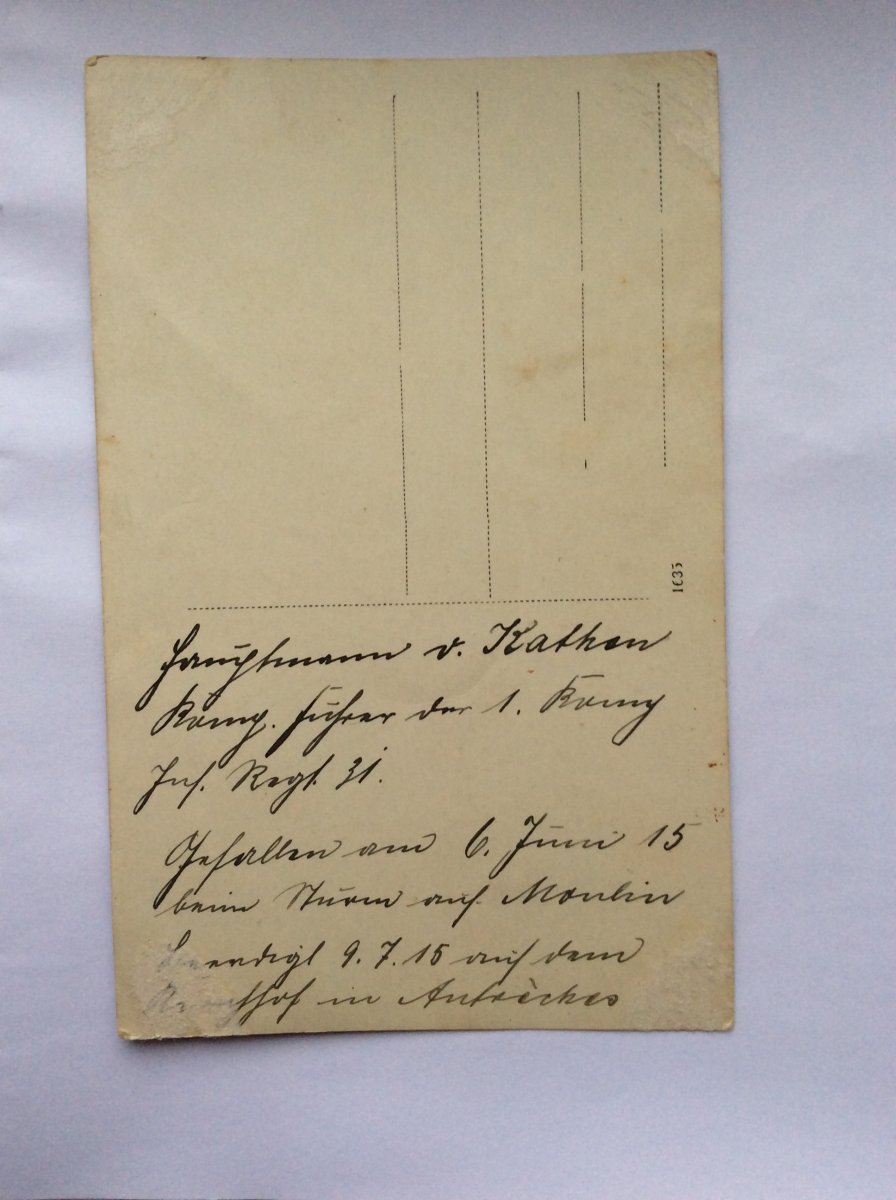 1635
Hauptmann v. Kathen
Komp. führer der 1. Komp
Inf. Regt. 31.
Gefallen am 6. Juni 15
beim Sturm auf Moulin
beerdigt 9. 7. 15 auf dem
in Autrèches